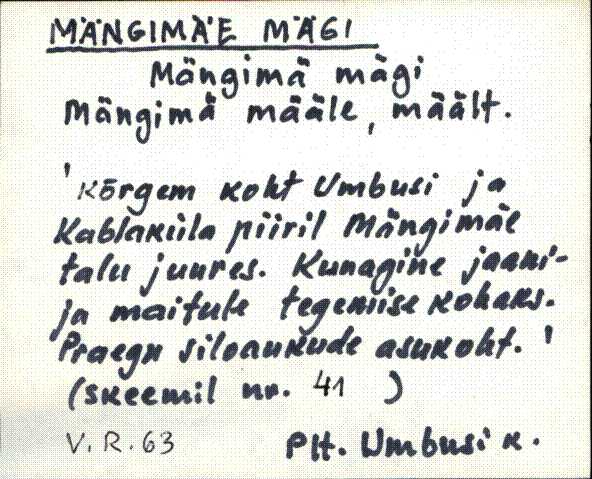 MÄNGIMÄE MÄGI
Mängimä mägi
Mängimä määle, mäält.
'Kõrgem koht Umbusi ja
Kablaküla piiril Mängimäe
talu juures. Kunagine jaani-
ja maitule tegemise kohaks.
Praegu siloaukude asukoht.'
(skeemil nr. 41 )
V.R.63
Plt. Umbusi k.